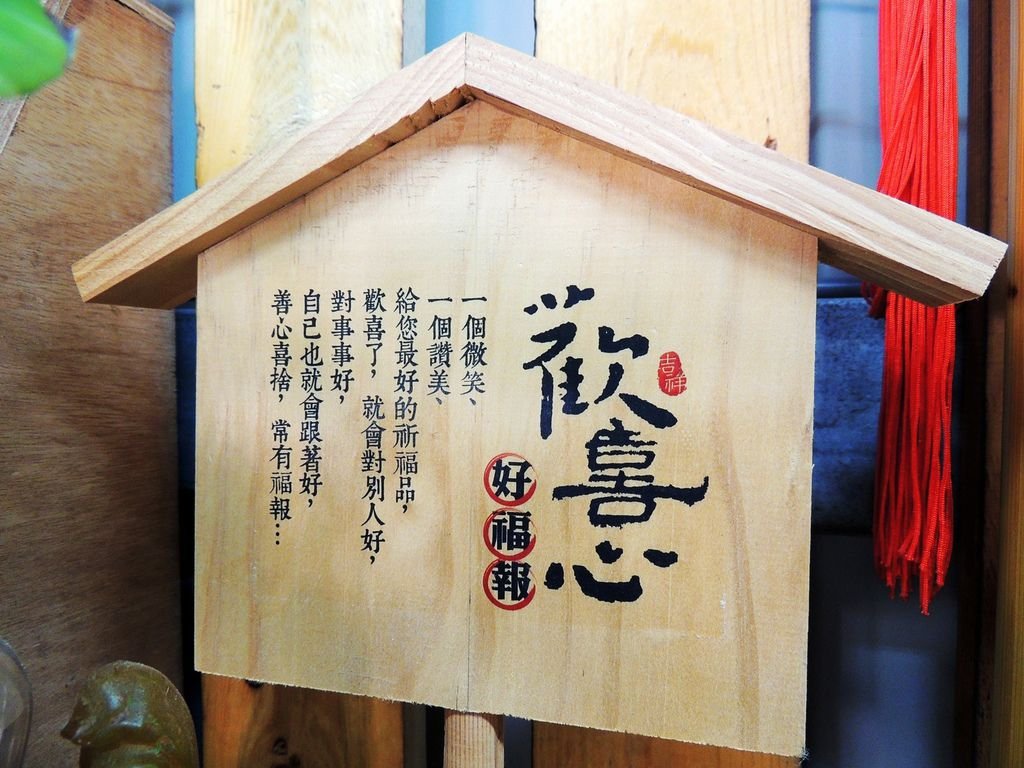 歡喜心
吉祥
好福報
一個微笑、
一個讚美、
給您最好的祈福品，
歡喜了，就會對別人好，
對事事好，
自己也就會跟著好，
善心喜捨，常有福報…